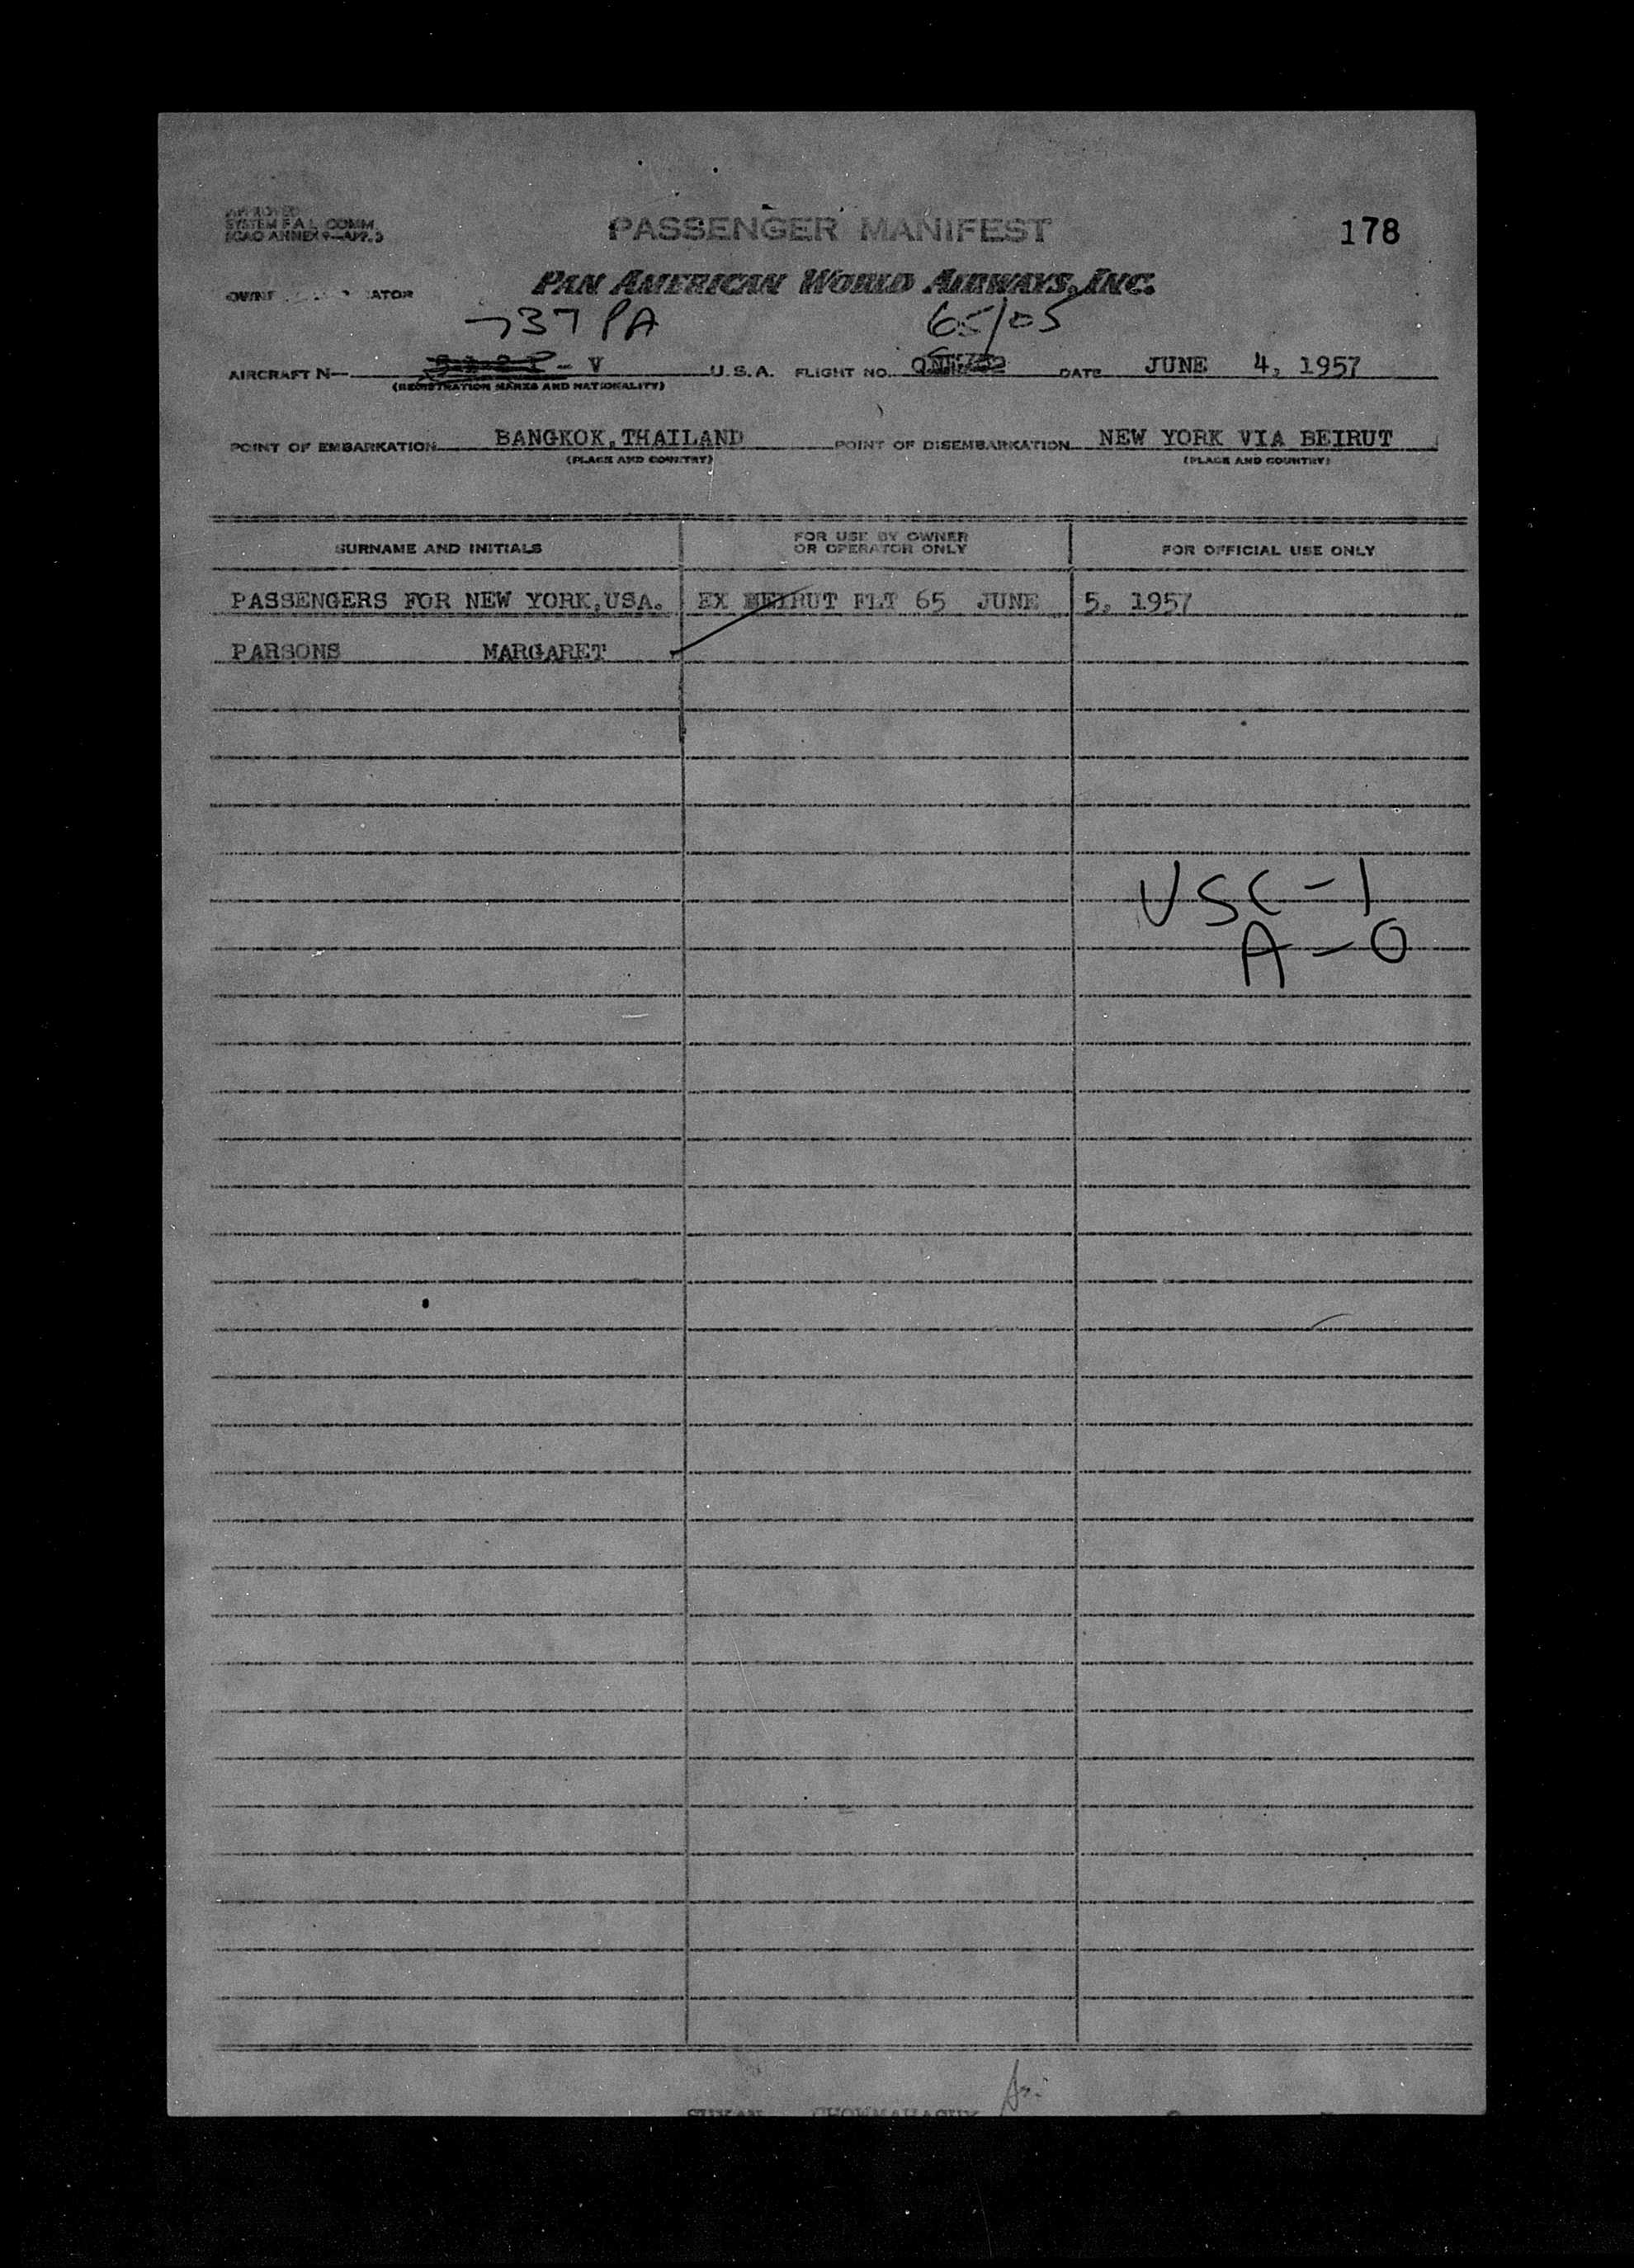 APPROVED
SYSTEM F.A.L. COMM.
ICAO ANNEX 9—APP. 3
PASSENGER MANIFEST
178
PAN AMERICAN WORLD AIRWAYS, INC.
737 PA 65/05
AIRCRAFT N— - V U.S.A. FLIGHT NO. DATE JUNE 4, 1957
(REGISTRATION MARKS AND NATIONALITY)
POINT OF EMBARKATION BANGKOK, THAILAND POINT OF DISEMBARKATION NEW YORK VIA BEIRUT
(PLACE AND COUNTRY) (PLACE AND COUNTRY)
SURNAME AND INITIALS
FOR USE BY OWNER
OR OPERATOR ONLY
FOR OFFICIAL USE ONLY
PASSENGERS FOR NEW YORK, USA. EX BEIRUT FLT 65 JUNE 5, 1957
PARSONS MARGARET
USC - 1
A - 0